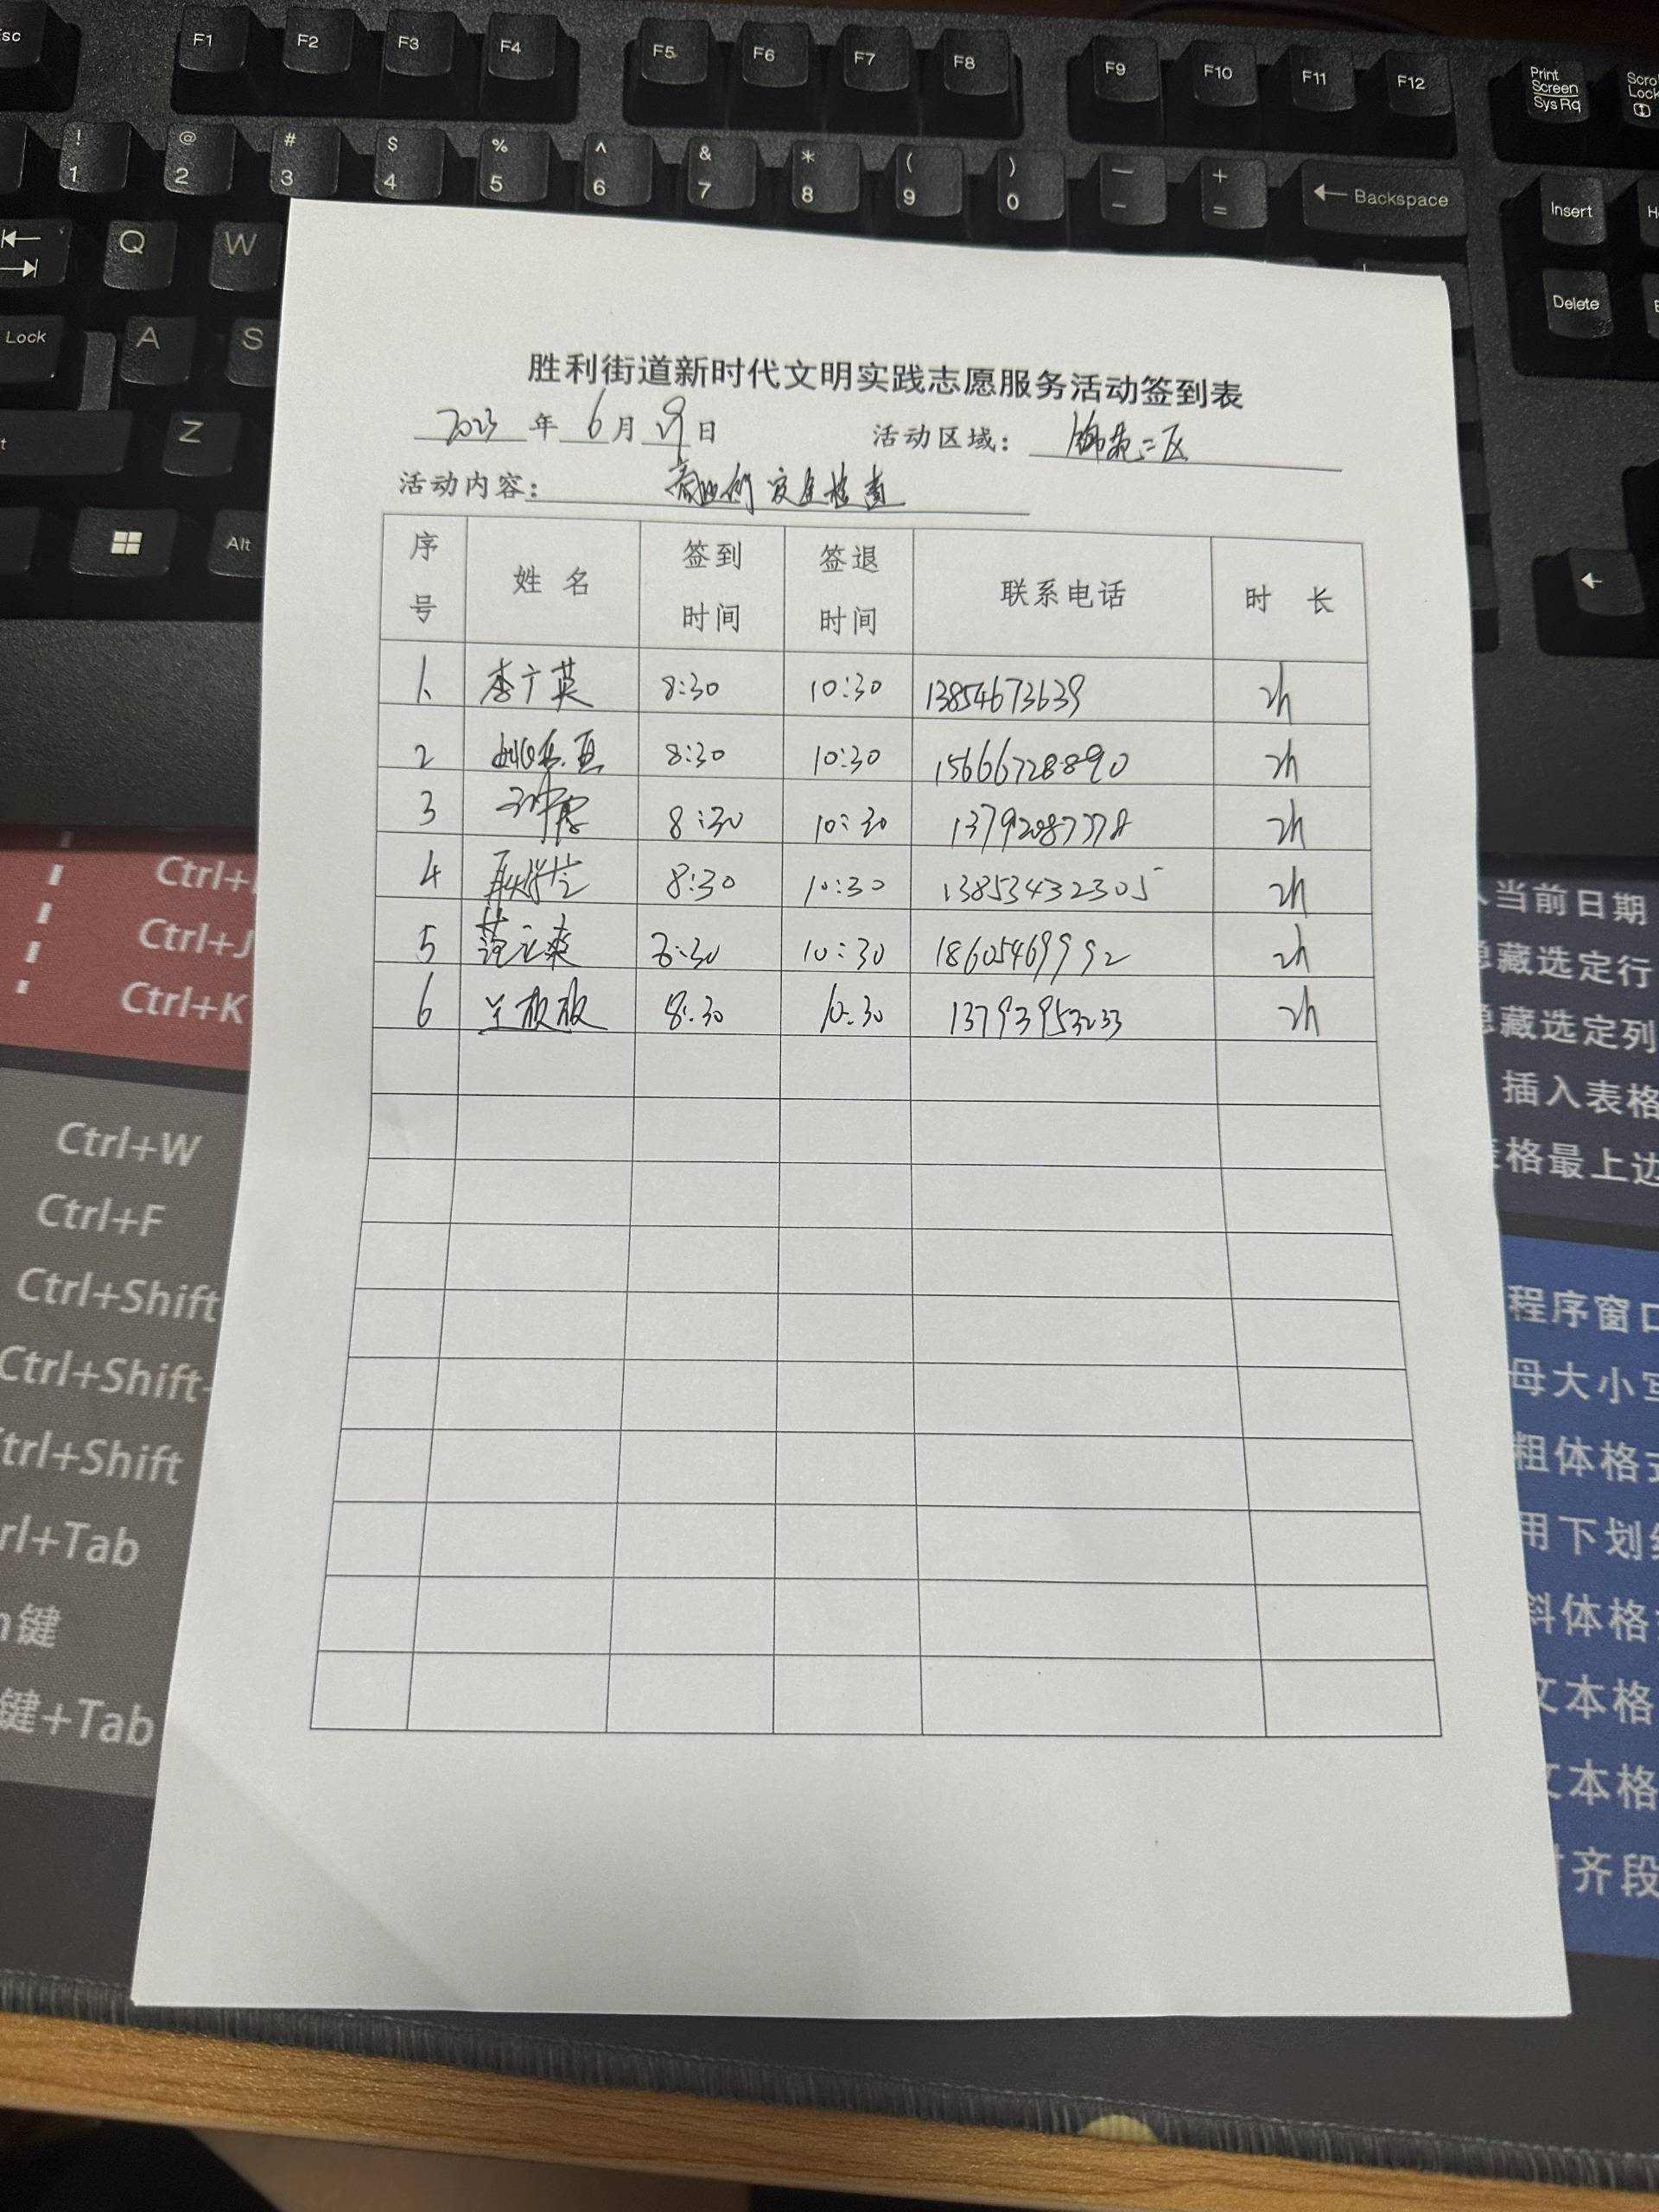 Esc F1 F2 F3 F4 F5 F6 F7 F8 F9 F10 F11 F12 Print Screen Sys Rq
! 1 @ 2 # 3 $ 4 % 5 ^ 6 & 7 * 8 ( 9 ) 0 — – + = ← Backspace Insert
Q W
Delete
Lock A S
Z
Alt
胜利街道新时代文明实践志愿服务活动签到表
2023 年 6 月 19 日 活动区域: 锦苑二区
活动内容: 安全检查
序号 姓名 签到时间 签退时间 联系电话 时长
1、 李广英 8:30 10:30 13854673639 2h
2 8:30 10:30 15666728890 2h
3 8:30 10:30 2h
4 8:30 10:30 13853432305 2h
5 范立爽 8:30 10:30 18605469992 2h
6 兰板板 8:30 10:30 13793953233 2h
Ctrl+J
Ctrl+K
Ctrl+W
Ctrl+F
Ctrl+Shift
Ctrl+Shift
Ctrl+Shift
键
键+Tab
当前日期
隐藏选定行
隐藏选定列
插入表格
表格最上边
程序窗口
母大小写
粗体格式
用下划线
斜体格
文本格
文本格
对齐段